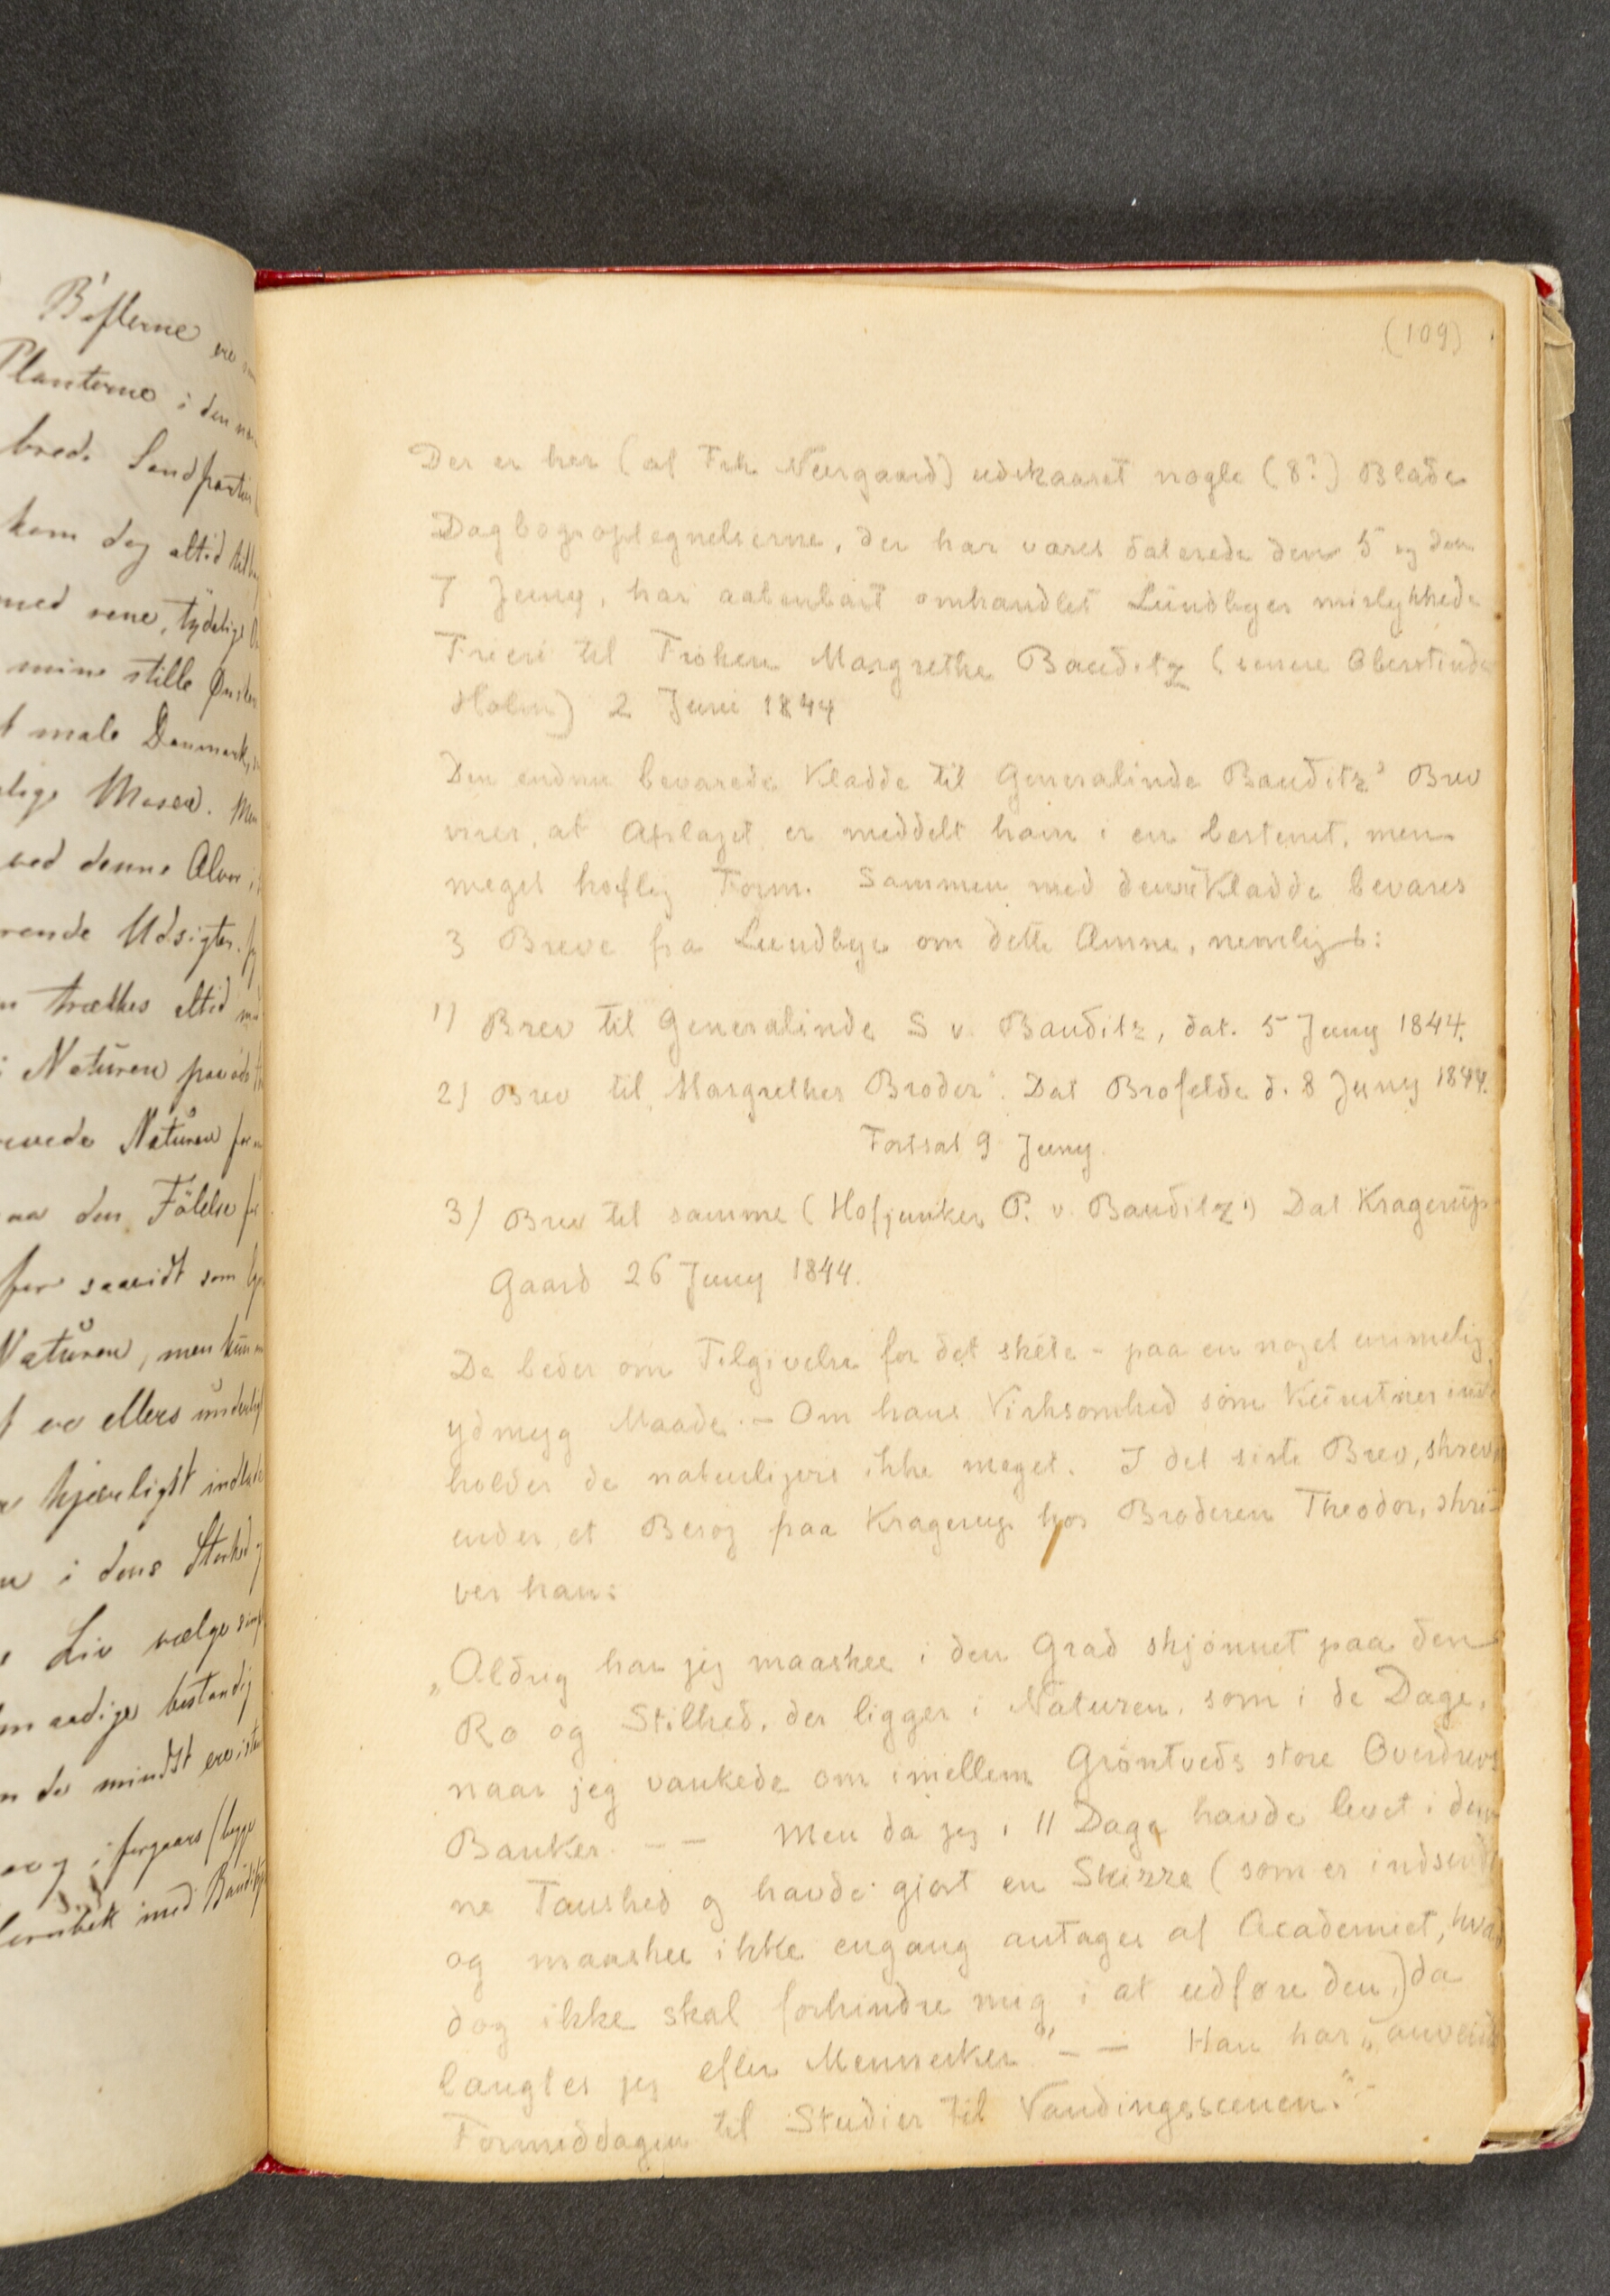 Bøflerne
Planterne i den
brede Landpartier
kom dog altid
med rene, tydelige
mine stille Ønsker
male Danmark,
Moser. Men
ved denne Alvor
Udsigter.
trættes altid
i Naturen paa
Naturen
den Følelse
for saavidt som
Naturen, men kun
ere ellers underlig
kjærligst
i dens Storhed
Liv vælge
bestandig
de mindst
og i forgaars
med
(109)
Der er her (af Frk. Neergaard) udskaaret nogle (8?) Blade
Dagbogsoptegnelserne, der har været daterede den 5 og den
7 Juny, har aabenbart omhandlet Lundbyes mislykkede
Frieri til Frøken Margrethe Bauditz (senere Oberstinde
Holm) 2 Juni 1844
Den endnu bevarede Kladde til Generalinde Bauditz' Brev
viser, at Afslaget er meddelt ham i en bestemt, men
meget høflig Form. Sammen med denne Kladde bevares
3 Breve fra Lundbye om dette Æmne, nemlig:
1) Brev til Generalinde S v. Bauditz, dat. 5 Juny 1844.
2) Brev til "Margrethes Broder". Dat Brofelde d. 8 Juny 1844.
Fortsat 9 Juny.
3) Brev til samme (Hofjunker P. v. Bauditz) Dat Kragerup
Gaard 26 Juny 1844.
De beder om Tilgivelse for det skete - paa en noget umælig
ydmyg Maade. - Om hans Virksomhed som Kunstner inde
holder de naturligvis ikke meget. I det siste Brev, skrevet
under et Besøg paa Kragerup hos Broderen Theodor, skri-
ver han:
„Aldrig har jeg maaskee i den Grad skjønnet paa den
Ro og Stilhed, der ligger i Naturen, som i de Dage,
naar jeg vankede om imellem Grøntveds store Overdrevs
Banker. - - Men da jeg i 11 Dage havde levet i den-
ne Taushed og havde gjort en Skizze (som er indsendt
og maaskee ikke engang antages af Academiet, hvad
dog ikke skal forhindre mig i at udføre den,) da
længtes jeg efter Mennesker" - - Han har „anvendt
Formiddagen til Studier til Vandingsscenen."